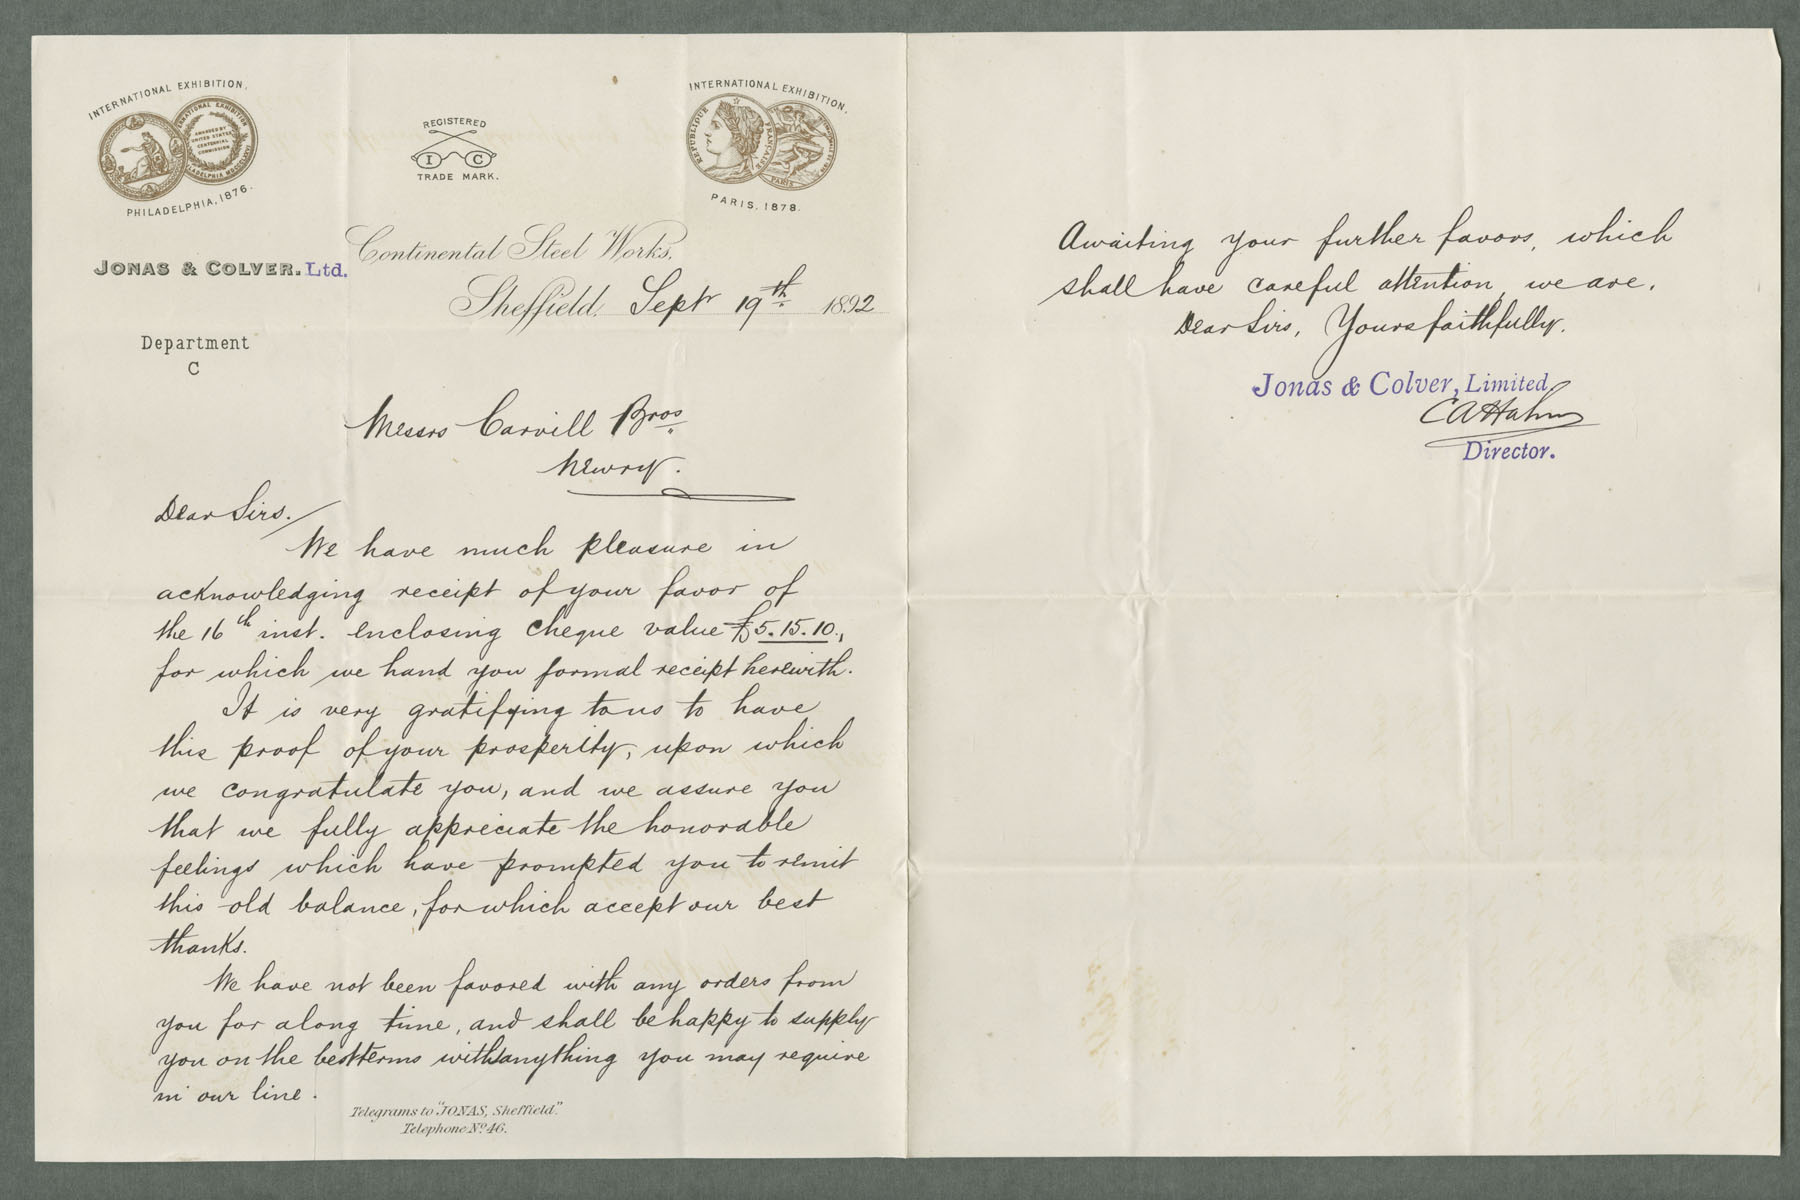 INTERNATIONAL EXHIBITION.
INTERNATIONAL EXHIBITION
AWARDED BY
UNITED STATES
CENTENNIAL
COMMISSION
PHILADELPHIA, 1876.
REGISTERED
I C
TRADE MARK.
INTERNATIONAL EXHIBITION.
REPUBLIQUE FRANÇAISE
PARIS
PARIS. 1878.
JONAS & COLVER. Ltd.
Continental Steel Works.
Sheffield, Sept 19th. 1892
Department
C
Messrs Carvill Bros
Newry.
Dear Sirs.
We have much pleasure in
acknowledging receipt of your favor of
the 16th inst. enclosing cheque value £5.15.10.,
for which we hand you formal receipt herewith.
It is very gratifying to us to have
this proof of your prosperity, upon which
we congratulate you, and we assure you
that we fully appreciate the honorable
feelings which have prompted you to remit
this old balance, for which accept our best
thanks.
We have not been favored with any orders from
you for a long time, and shall be happy to supply
you on the best terms with anything you may require
in our line.
Telegrams to "JONAS, Sheffield."
Telephone No 46.
Awaiting your further favors, which
shall have careful attention, we are.
Dear Sirs, Yours faithfully.
Jonas & Colver, Limited,
CAHahn
Director.